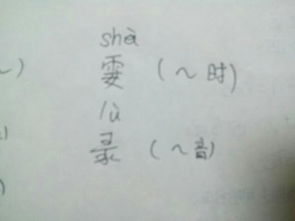 shà
霎 (～时)
lù
录 (～音)